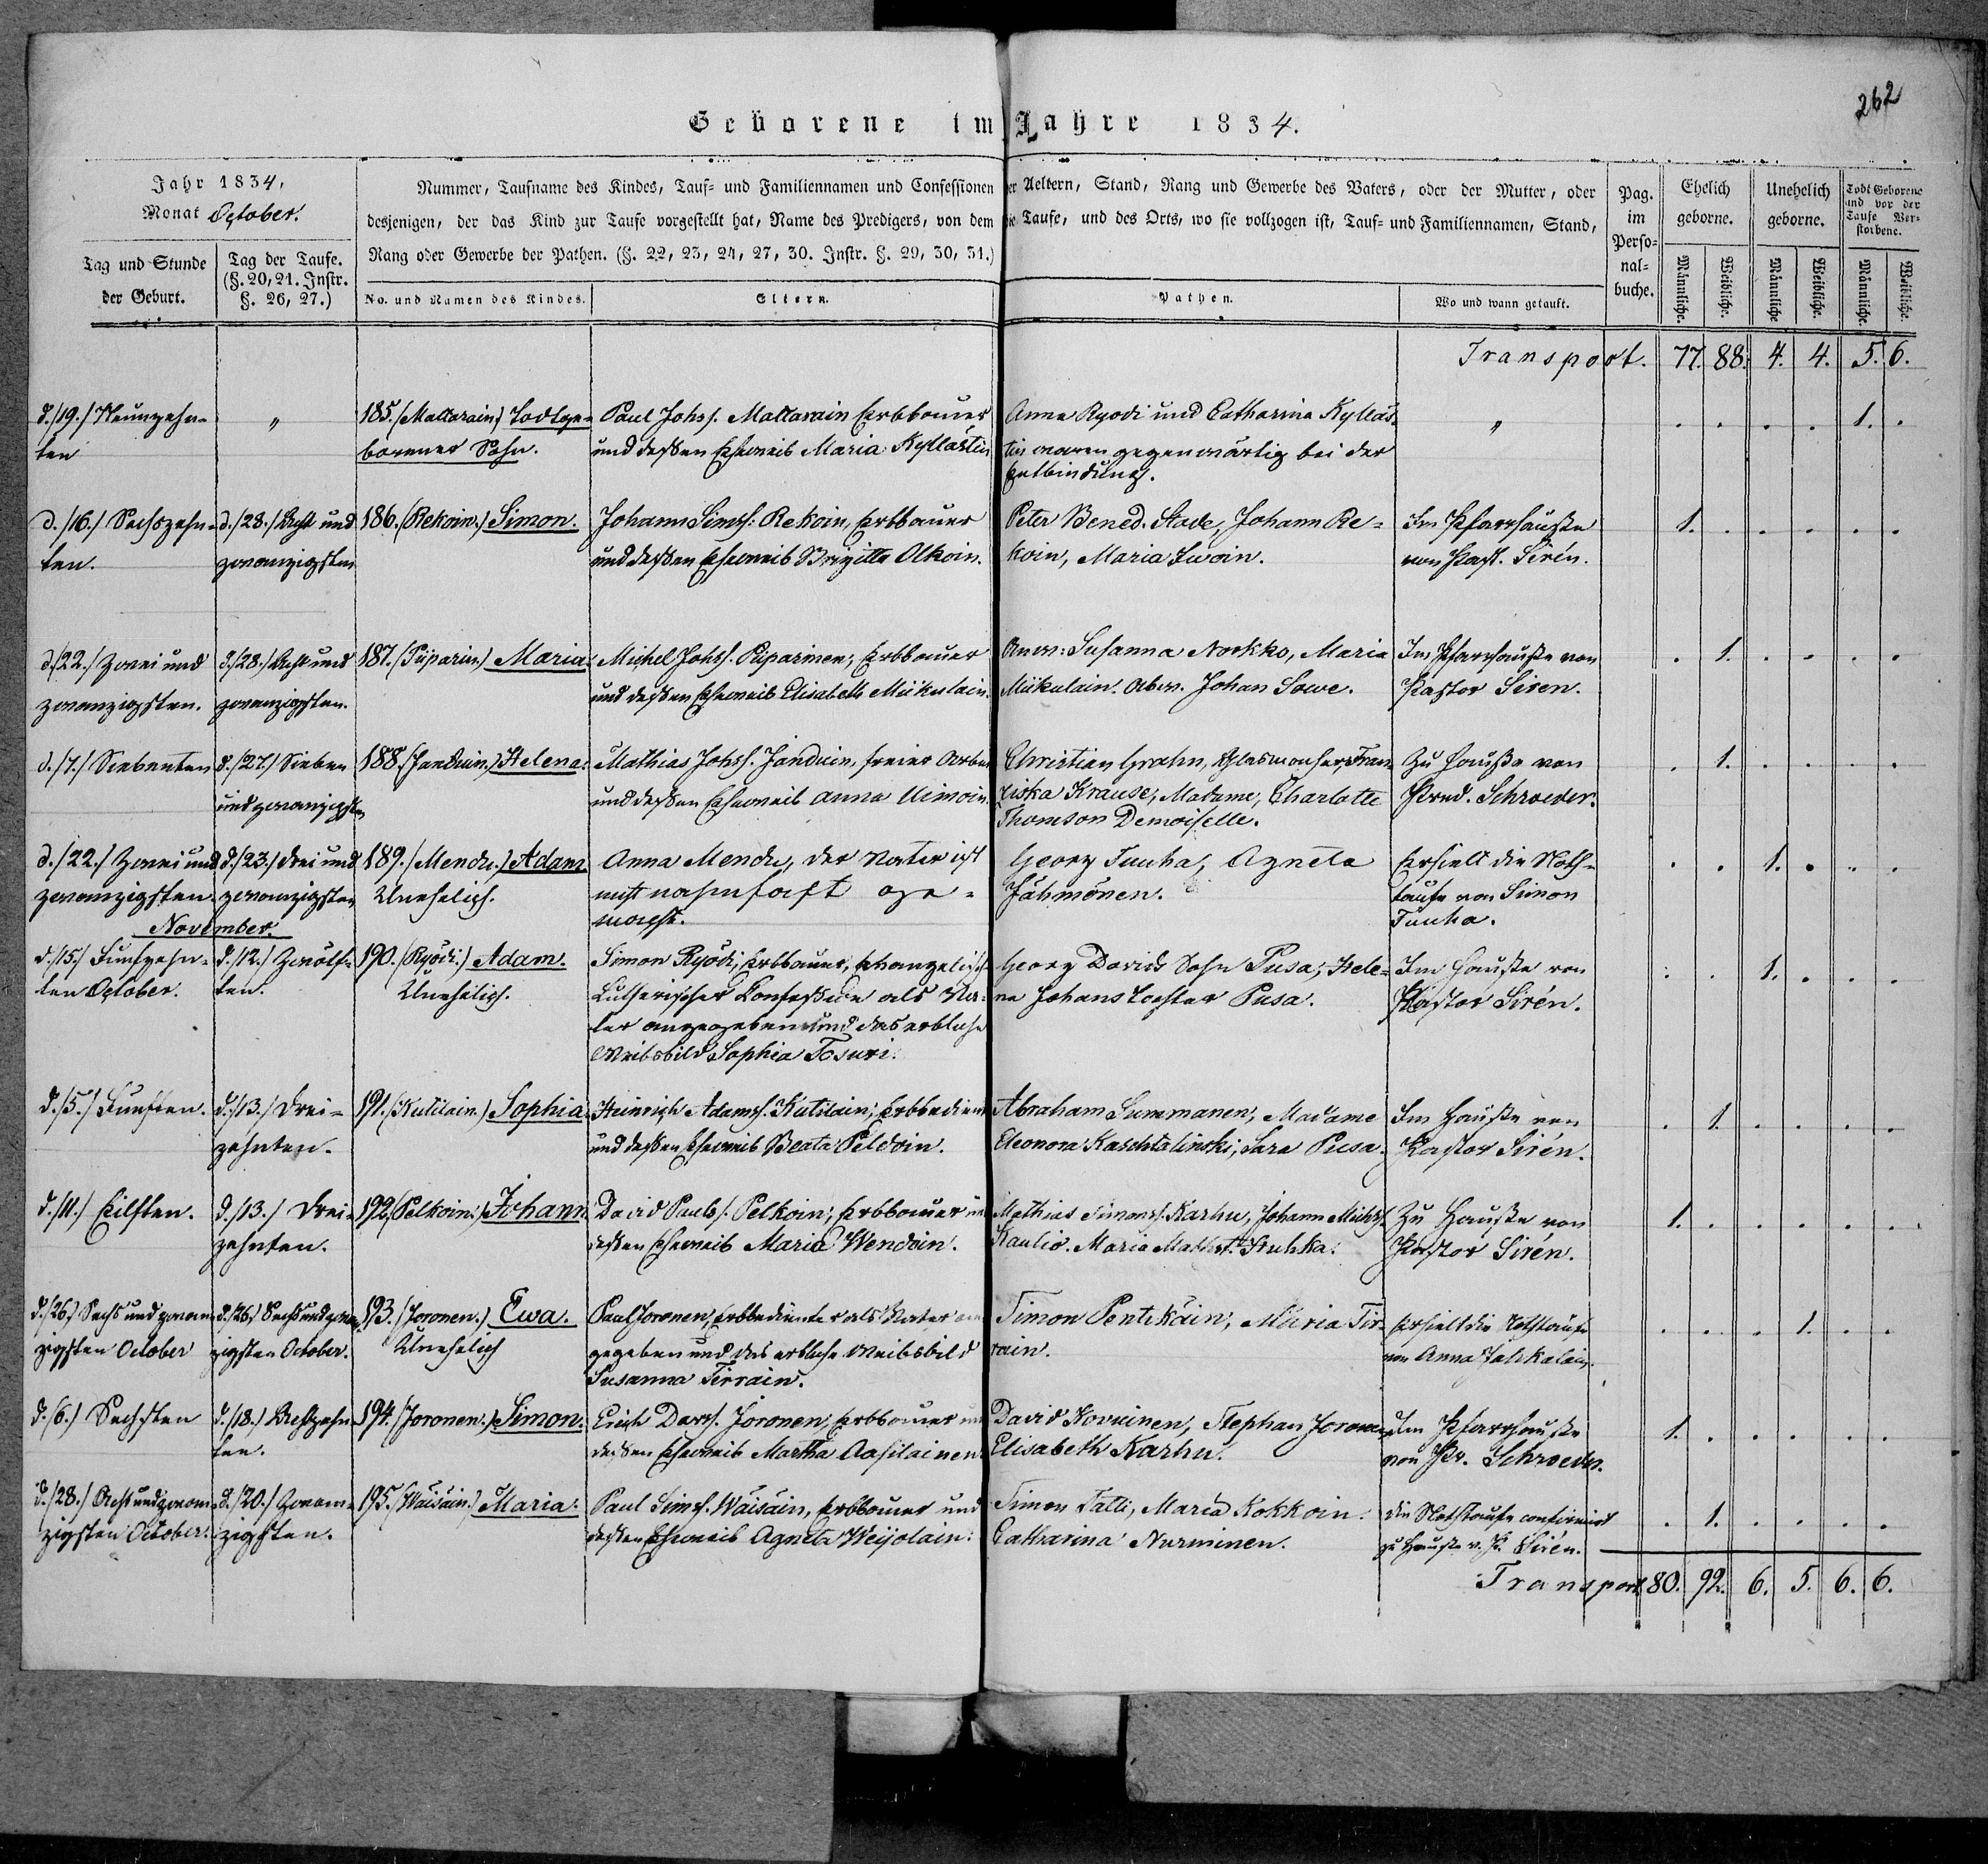 262
Geborene im Jahre 1834.
Jahr 1834,
Monat October.
Tag und Stunde
der Geburt.
Tag der Taufe.
(§. 20, 21. Instr.
§. 26, 27.)
Nummer, Taufname des Kindes, Tauf= und Familiennamen und Confessionen der Aeltern, Stand, Rang und Gewerbe des Vaters, oder der Mutter, oder
desjenigen, der das Kind zur Taufe vorgestellt hat, Name des Predigers, von dem die Taufe, und des Orts, wo sie vollzogen ist, Tauf= und Familiennamen, Stand,
Rang oder Gewerbe der Pathen. (§. 22, 23, 24, 27, 30. Instr. §. 29, 30, 31.)
No. und Namen des Kindes.
Eltern.
Pathen.
Wo und wann getauft.
Pag.
im
Perso=
nal=
buche.
Ehelich
geborne.
Unehelich
geborne.
Todt Geborene
und vor der
Taufe Ver=
storbene.
Männliche.
Weibliche.
Männliche
Weibliche.
Männliche.
Weibliche.
Transport. 77. 88. 4. 4. 5. 6.
d./19./ Neunzehn-
ten
"
185. (Mattarain) Todtge-
borener Sohn.
Paul Johss. Mattarain Erbbauer
und deßen Eheweib Maria Kyllästin
Anna Ryodi und Catharina Kylläs-
tin waren gegenwärtig bei der
Entbindung.
"
1.
d./16./ Sechszehn-
ten.
d./28./ Acht und
zwanzigsten
186. (Rekoin.) Simon.
Johann Simss: Rekoin, Erbbauer
und deßen Eheweib Brigitta Olkoin.
Peter Bened. Stade, Johann Re-
koin, Maria Iwoin.
Im Pfarrhauße
von Past. Sirén.
1.
d./22./ Zwei und
zwanzigsten.
d./28./ Acht und
zwanzigsten.
187. (Piiparin.) Maria.
Michel Johss. Piiparinen, Erbbauer
und deßen Eheweib Elisabeth Miikulain.
Susanna Norkko, Maria
Miikulain. Johan Sowe.
Im Pfarrhauße von
Pastor Siren.
1.
d./7./ Siebenten
d./27./ Sieben
und zwanzigsten
188. (Janduin.) Helena.
Mathias Johss. Janduin, freier
und deßen Eheweib Anna Uimoin.
Christian Grahn, Glasmacher, Fran-
ziska Krause, Madame, Charlotte
Thomson Demoiselle.
Zu Hauße von
Pred. Schroeder.
1.
d./22./ Zwei und
zwanzigsten.
d./23./ Drei und
zwanzigsten
189. (Mendu.) Adam.
Unehelich.
Anna Mendu, der Vater ist
nicht nahmhaft ge-
macht.
Georg Tuuha, Agneta
Jähmönen.
Erhielt die Noth-
taufe von Simon
Tuuha.
1.
November.
d./15./ Funfzehn-
ten October.
d./12./ Zwölf-
ten.
190. (Ryödi.) Adam.
Unehelich.
Simon Ryödi, Erbbauer, Evangelisch
Lutherischer Confession als Va-
ter angegeben und das erbliche
Weibsbild Sophia Tosuri.
Georg Davids Sohn Pusa, Hele-
na Johanstochter Pusa.
Im Hauße von
Pastor Sirén.
1.
d./5./ Funften.
d./13./ Drei-
zehnten.
191. (Kutilain.) Sophia
Heinrich Adamss. Kutilain, Erbbedient
und deßen Eheweib Beata Peldoin.
Abraham Summanen, Madame
Eleonora Kaschtalinski, Sara Pusa.
Im Hauße von
Pastor Sirén.
1.
d./11./ Eilften.
d./13./ Drei-
zehnten.
192. (Pelkoin.) Johann.
David Pauls s. Pelkoin, Erbbauer und
deßen Eheweib Maria Wendoin.
Mathias Simonss. Karhu, Johann Michss.
Kaulio. Maria Matht. Huhka.
Zu Hauße von
Pastor Sirén.
1.
d./26./ Sechs und zwan-
zigsten October
d./26./ Sechs und zwan-
zigsten October.
193. (Joronen.) Ewa.
Unehelich
Paul Joronen, Erbbedienter als Vater an-
gegeben und das erbliche Weibsbild
Susanna Tirrain.
Simon Pentikäin, Maria Tir-
rain.
Erhielt die Nothtaufe
von Anna Jalikalain.
1.
d./6./ Sechsten
d./18./ Achtzehn-
ten.
194. (Joronen.) Simon.
Erich Davss. Joronen, Erbbauer und
deßen Eheweib Martha Aasilainen.
David Hovinen, Stephan Joronen
Elisabeth Karhu.
Im Pfarrhauße
von Pr. Schroeder.
1.
d./28./ Acht und zwan-
zigsten October.
d./20./ Zwan-
zigsten.
195. (Wäisäin.) Maria.
Paul Simss. Wäisäin, Erbbauer und
deßen Eheweib Agneta Weijolain.
Simon Talli, Maria Kokkoin.
Catharina Nurminen.
Die Nothtaufe confirmirt
zu Hauße v. P. Sirén.
1.
Transport 80. 92. 6. 5. 6. 6.